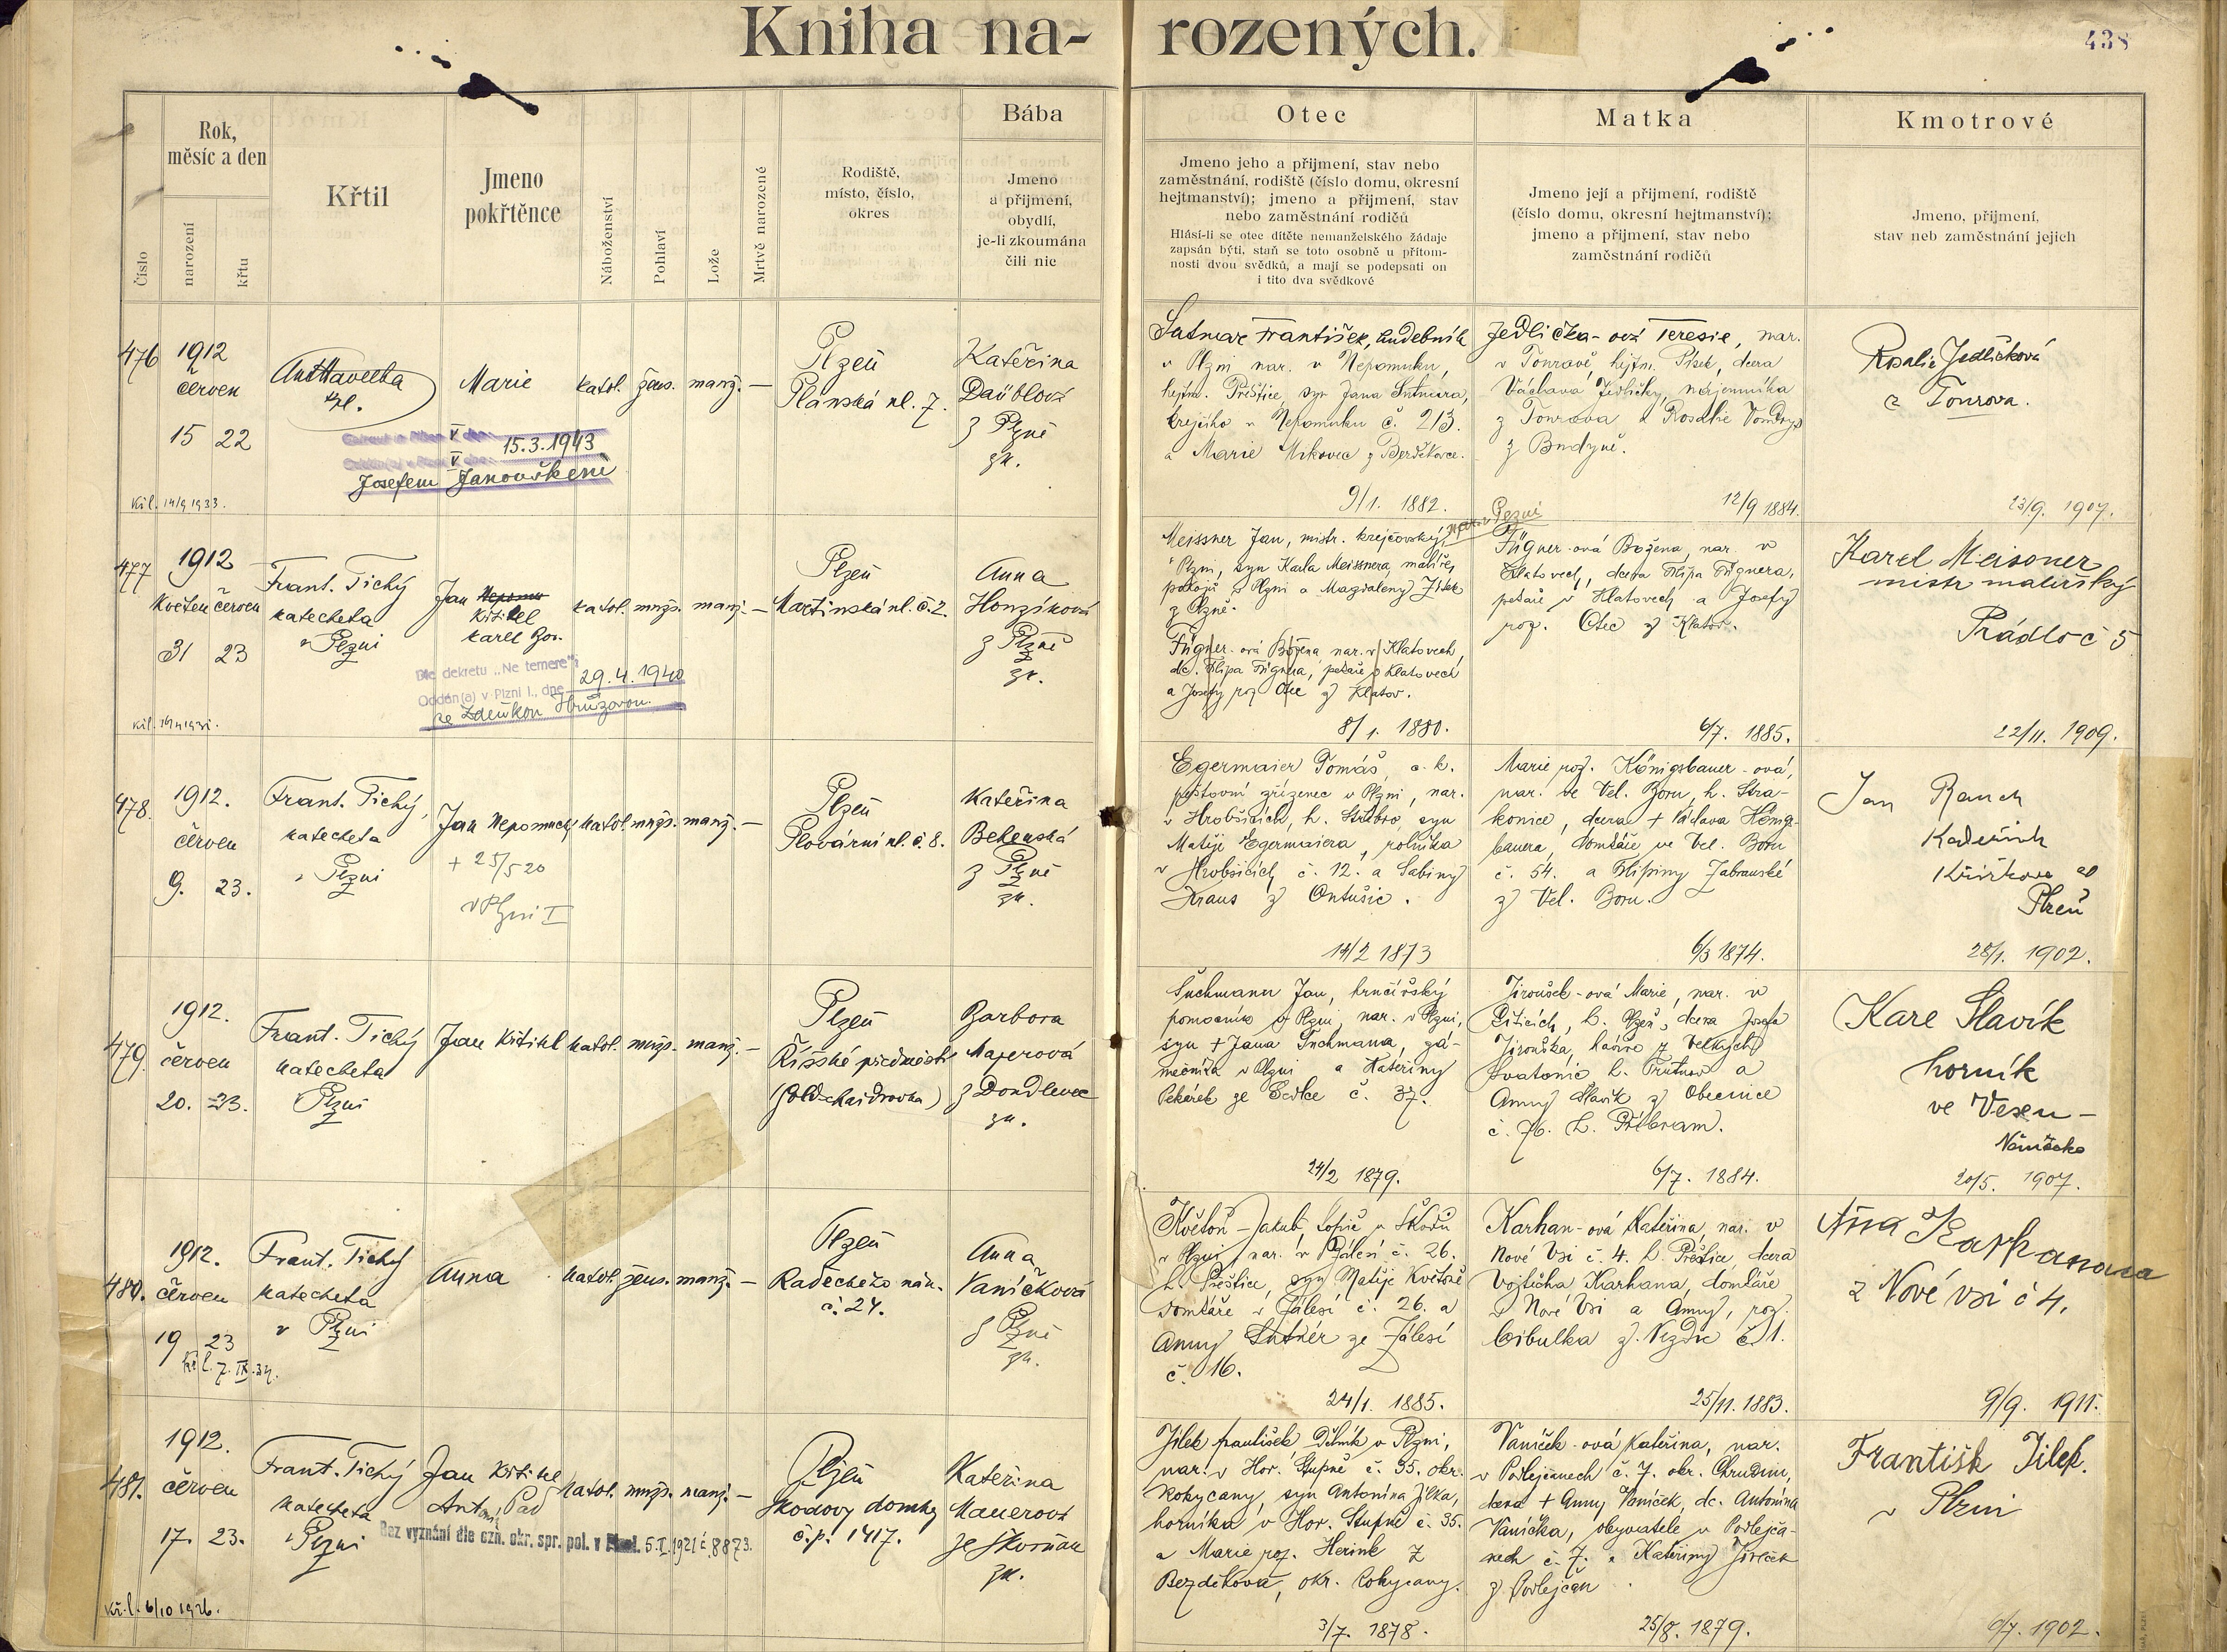 Kniha na-
rozených.
438
Číslo
Rok,
měsíc a den
narození
křtu
Křtil
Jmeno
pokřtěnce
Náboženství
Pohlaví
Lože
Mrtvě narozené
Rodiště,
místo, číslo,
okres
Bába
Jmeno
a přijmení,
obydlí,
je-li zkoumána
čili nic
Otec
Jmeno jeho a přijmení, stav nebo
zaměstnání, rodiště (číslo domu, okresní
hejtmanství); jmeno a přijmení, stav
nebo zaměstnání rodičů
Hlásí-li se otec dítěte nemanželského žádaje
zapsán býti, staň se toto osobně u přítom-
nosti dvou svědků, a mají se podepsati on
i tito dva svědkové
Matka
Jmeno její a přijmení, rodiště
(číslo domu, okresní hejtmanství);
jmeno a přijmení, stav nebo
zaměstnání rodičů
Kmotrové
Jmeno, přijmení,
stav neb zaměstnání jejich
476
1912
červen
15 22
Marie
katol. žens. manž. —
15.3.1943
Josefem Janouškem
Kř.l. 14/9 1933.
Plzeň
Plánská ul. 7.
Kateřina
z Plzně
zk.
František, hudebník
v Plzni nar. v Nepomuku,
hejtm. Přeštice, syn Jana
krejčího v Nepomuku č. 213.
a Marie Mikovec z
9/1. 1882.
Jedlička-ová Teresie, nar.
hejtm. Písek, dcera
Václava Jedličky, nájemníka
a Rosalie
z Budyně.
12/9 1884.
Rosalie Jedličková
z Tourova.
23/9. 1907.
477
1912
Květen červen
31 23
Frant. Tichý
katecheta
v Plzni
Jan
Křtitel
Karel Bor.
katol. mužs. manž. —
Dle dekretu „Ne temere“
Oddán(a) v Plzni I., dne 29.4.1940
se Zdeňkou Hrůzovou.
Plzeň
Martinská ul. č. 2.
Anna
Honzíková
z Plzně
zk.
Meissner Jan, mistr. krejčovský
v Plzni, syn Karla Meissnera, malíře
pokojů v Plzni a Magdaleny
z Plzně.
Fügner-ová Božena nar. v Klatovech,
dc. Filipa Fügnera, pekaře v Klatovech
a Josefy roz. Otec z Klatov.
8/1. 1880.
v Plzni
Fügner-ová Božena, nar. v
Klatovech, dcera Filipa Fügnera,
pekaře v Klatovech a Josefy
roz. Otec z Klatov.
6/7. 1885.
Karel Meissner
mistr malířský
Prádlo č 5
22/11. 1909.
478.
1912.
červen
9. 23.
Frant. Tichý,
katecheta
v Plzni
Jan Nepomucký
katol. mužs. manž. —
+ 25/5 20
v Plzni I
Plzeň
Plovární ul. č. 8.
Kateřina
z Plzně
zk.
Egermaier Tomáš, c. k.
poštovní zřízenec v Plzni, nar.
h. Stříbro, syn
Matěje Egermaiera, rolníka
č. 12. a Sabiny
Kraus z
14/2 1873
Marie roz. Königsbauer-ová,
nar. ve Vel. Boru, h. Stra-
konice, dcera + Václava Königs-
bauera, domkáře ve Vel. Boru
č. 54. a Filipiny
z Vel. Boru.
6/3 1874.
Jan Rauch
Kadeřník
Plzeň
28/1. 1902.
479.
1912.
červen
20. 23.
Frant. Tichý
katecheta
Plzni
Jan Křtitel
katol. mužs. manž. —
Plzeň
Říšské předměstí
Barbora
Majerová
z Doudlevec
zk.
Suchmann Jan, hrnčířský
pomocník v Plzni, nar. v Plzni,
syn + Jana Suchmana, zá-
mečníka v Plzni a Kateřiny
Pekárek ze Sedlce č. 37.
24/2 1879.
Jiroušek-ová Marie, nar. v
h. Plzeň, dcera Josefa
Jirouška, z Velkých
Svatonic h. Trutnov a
Anny Slavík z Obecnice
č. 76. h. Příbram.
6/7. 1884.
Kare Slavík
horník
ve Vesen —
Německo
20/5. 1907.
480.
1912.
červen
19 23
Kř.l. 7.IX.34.
Frant. Tichý
katecheta
v Plzni
Anna
katol. žens. manž. —
Plzeň
Radeckého nám.
č. 24.
Anna
Vaníčková
z Plzně
zk.
Květoň Jakub, topič u Škodů
v Plzni, nar. v Zálesí č. 26.
h. Přeštice, syn Matěje Květoně
domkáře v Zálesí č. 26. a
Anny ze Zálesí
č. 16.
24/1. 1885.
Karhan-ová Kateřina, nar. v
Nové Vsi č. 4. h. Přeštice, dcera
Vojtěcha Karhana, domkáře
v Nové Vsi a Anny, roz.
Cibulka z č. 1.
25/11. 1883.
z Nové vsi č 4.
9/9. 1911.
481.
1912.
červen
17. 23.
Kř.l. 6/10 1926.
Frant. Tichý
katecheta
v Plzni
Jan Křtitel
katol. mužs. manž. —
Bez vyznání dle ozn. okr. spr. pol. v 5.I.1921 č. 8873.
Plzeň
Škodovy domky
č.p. 1417.
Kateřina
Mauerová
ze Skvrňan
zk.
Jílek František dělník v Plzni,
nar. v Hor. Stupně č. 35. okr.
Rokycany, syn Antonína Jílka,
horníka v Hor. Stupně č. 35.
a Marie roz. Herink z
Bezděkova, okr. Rokycany.
3/7. 1878.
Vaníček-ová Kateřina, nar.
v Podlejčanech č. 7. okr. Chrudim,
dcera + Anny Vaníček, dc. Antonína
Vaníčka, obyvatele v Podlejča-
nech č. 7. a Kateřiny
z Podlejčan.
25/8. 1879.
Františk Jílek.
v Plzni
1902.